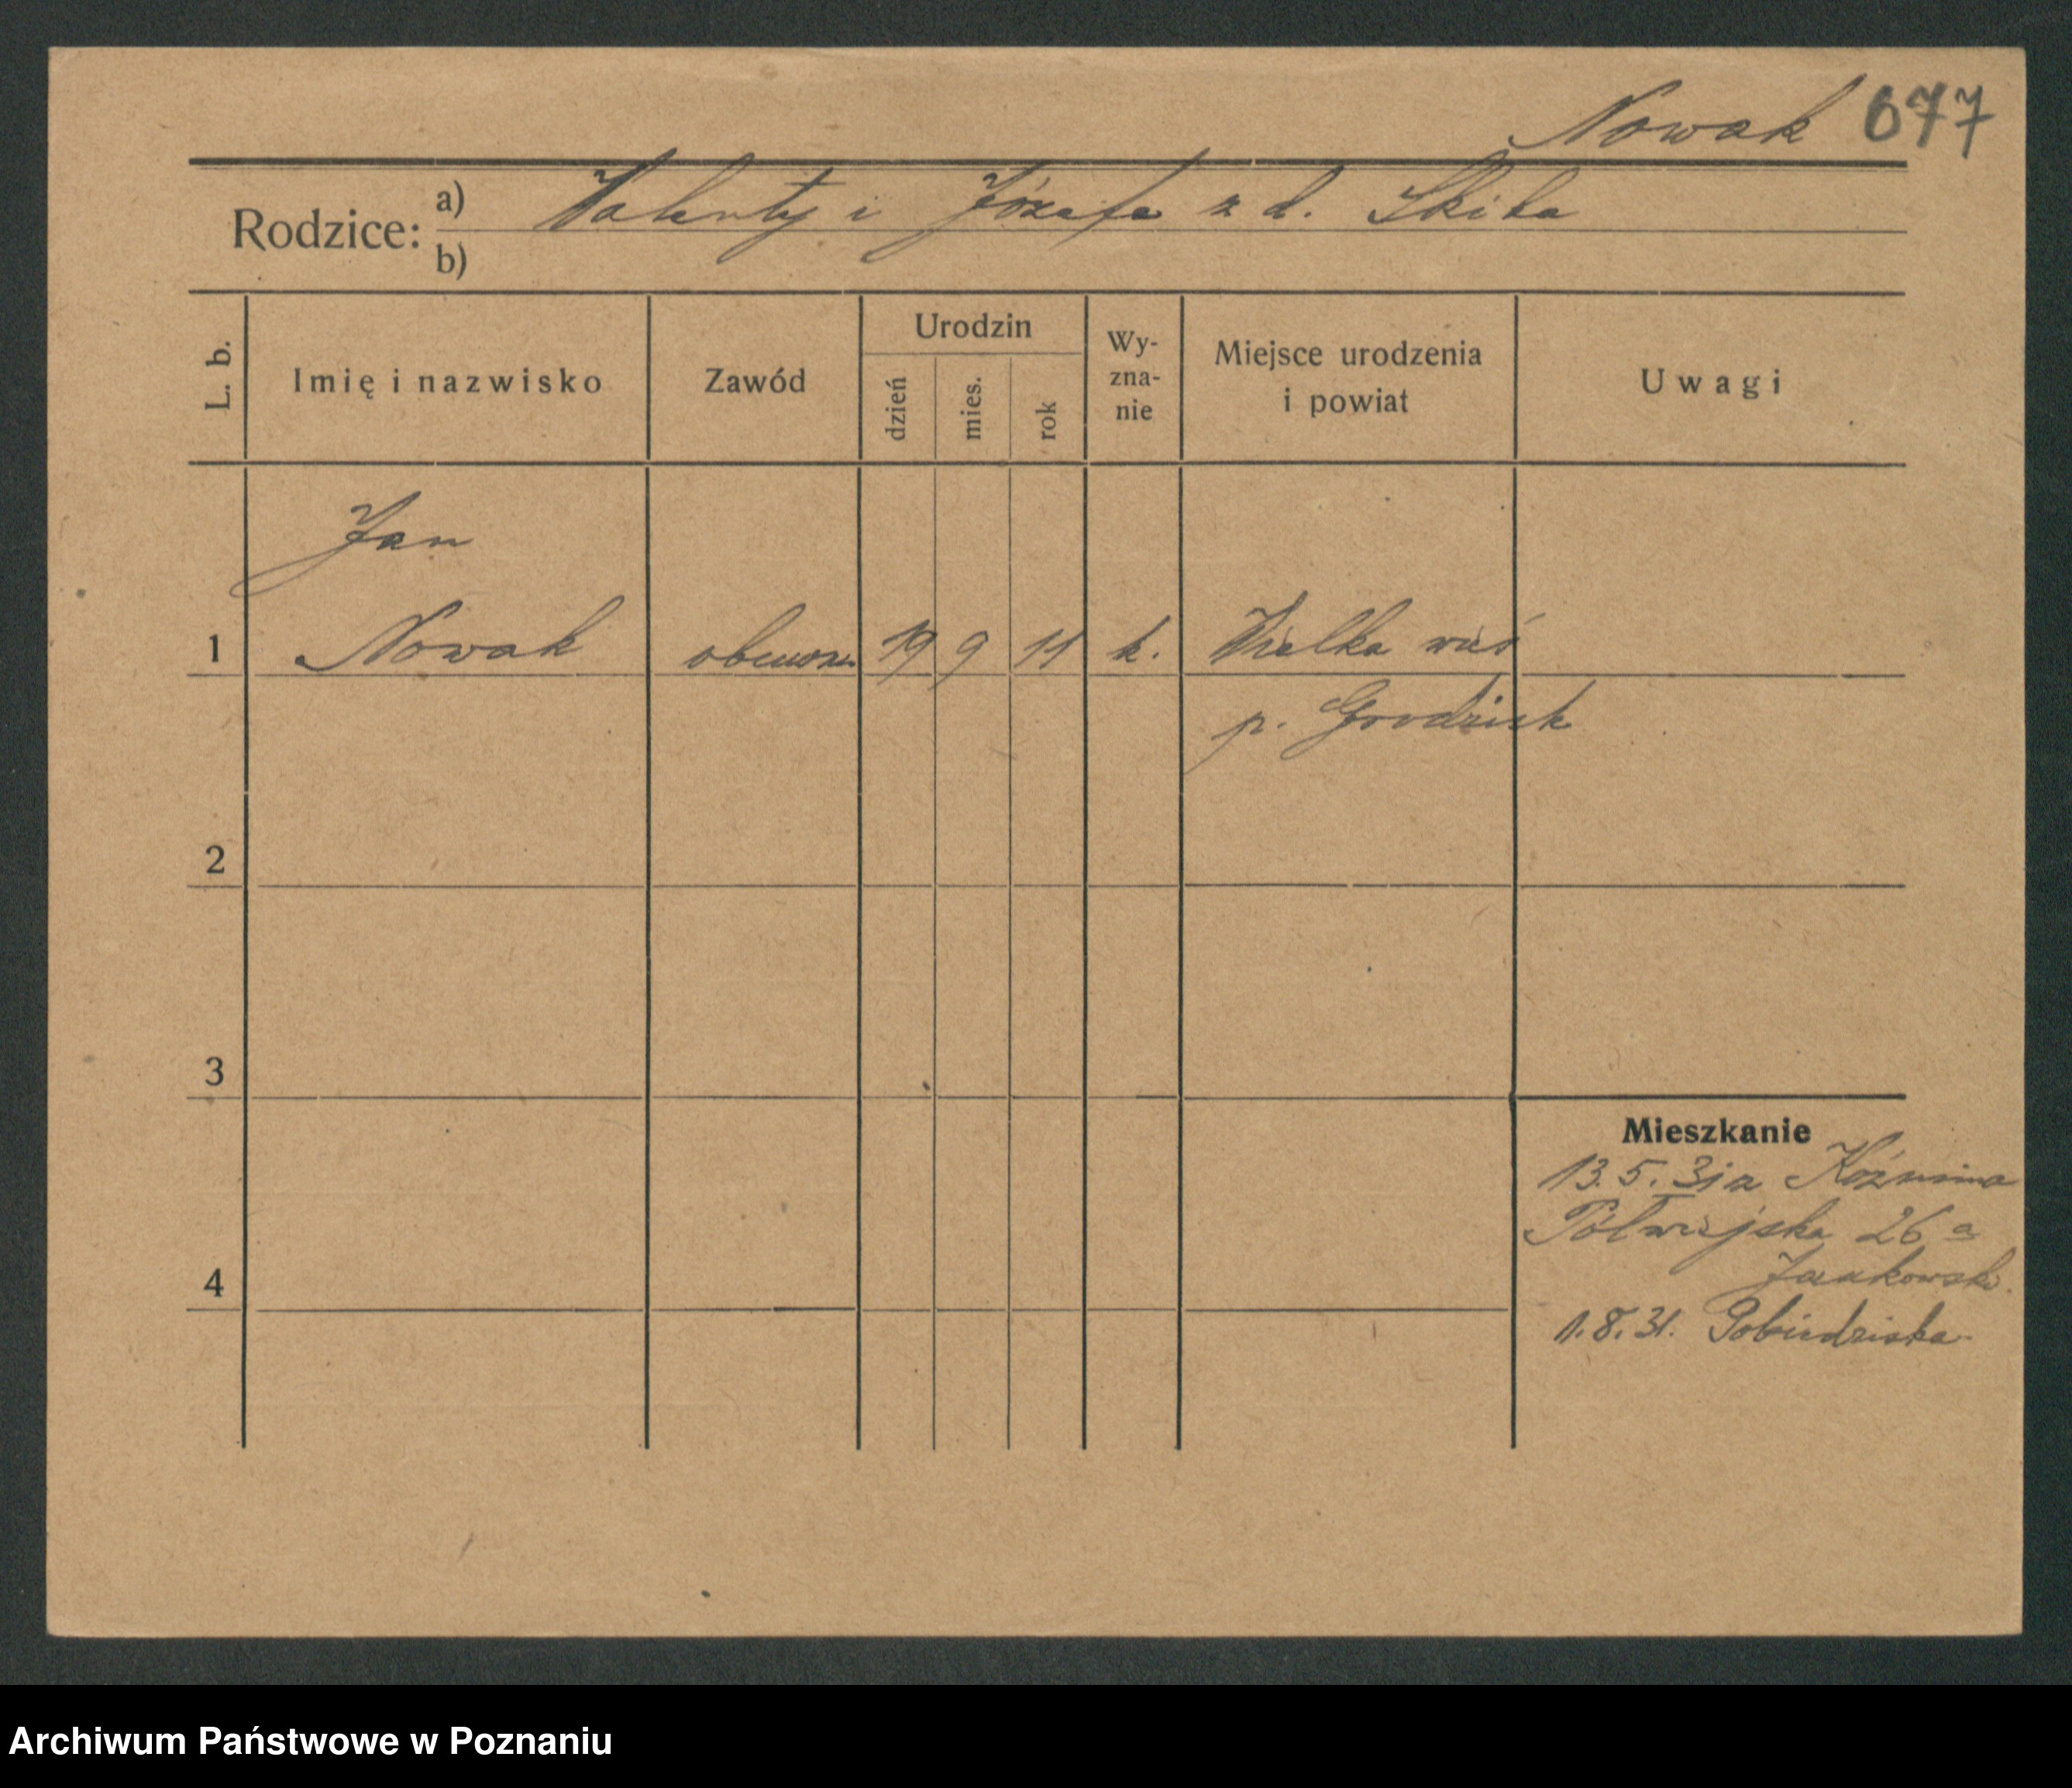 Nowak 677
Rodzice: a) Walenty i Józefa z d. Skiba
b)
L. b. Imię i nazwisko Zawód Urodzin dzień mies. rok Wy-zna-nie Miejsce urodzenia i powiat Uwagi
Jan
1 Nowak 19 9 11 k. Wielka wieś
p. Grodzisk
2
3
Mieszkanie
13.5.31 z Koźmina
Półwiejska 26 a
4
1.8.31. Pobiedziska
Archiwum Państwowe w Poznaniu